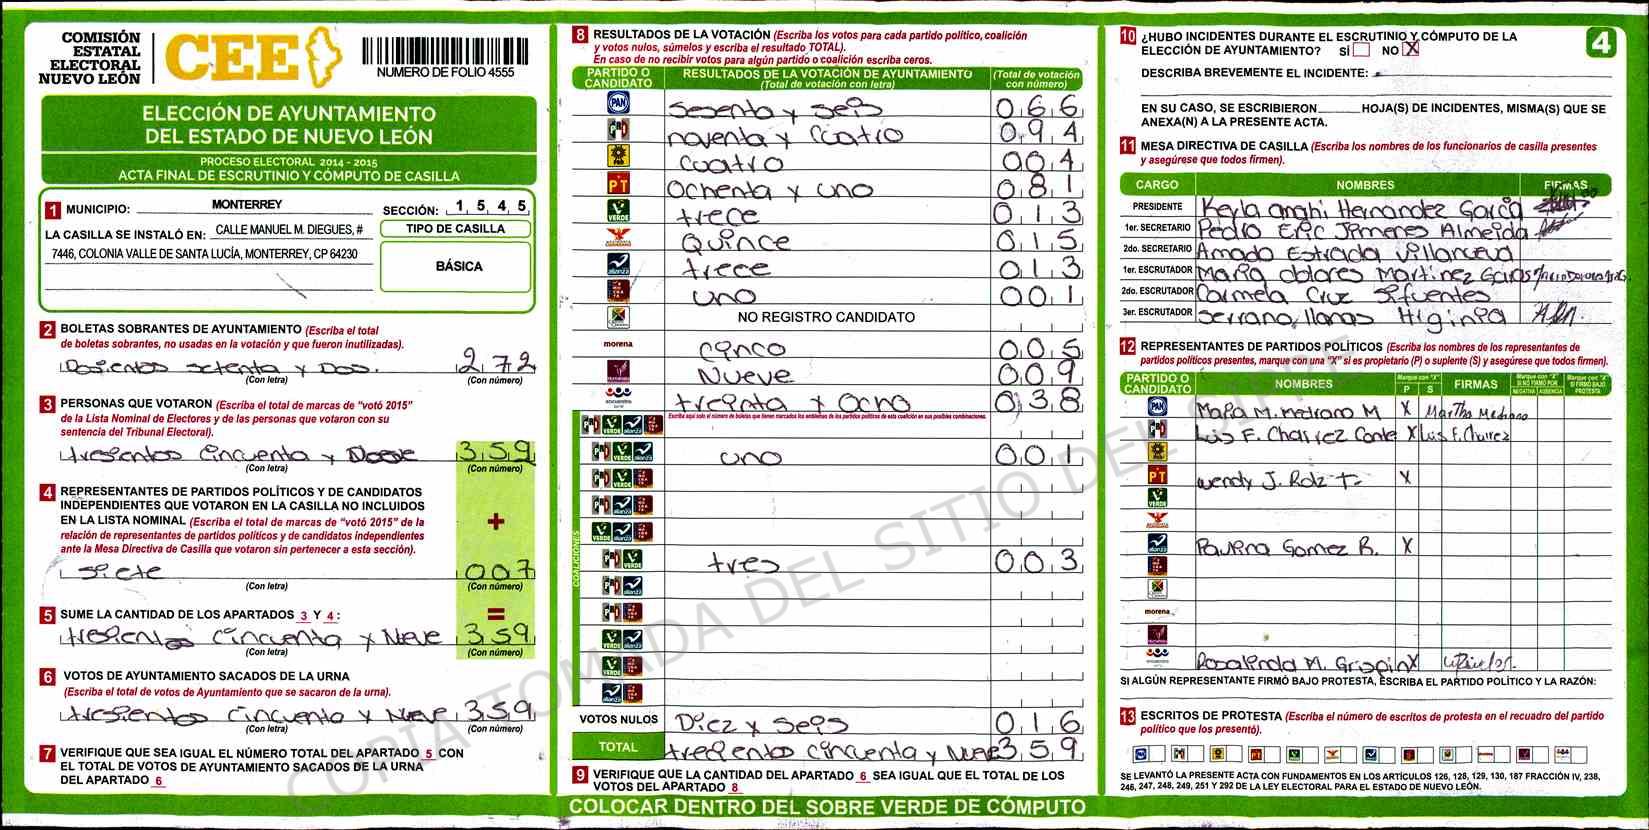 COMISIÓN
ESTATAL
ELECTORAL
NUEVO LEÓN
CEE
NUMERO DE FOLIO 4555
ELECCIÓN DE AYUNTAMIENTO
DEL ESTADO DE NUEVO LEÓN
PROCESO ELECTORAL 2014 - 2015
ACTA FINAL DE ESCRUTINIO Y CÓMPUTO DE CASILLA
1 MUNICIPIO: MONTERREY SECCIÓN: 1 5 4 5
LA CASILLA SE INSTALÓ EN: CALLE MANUEL M. DIEGUES, #
7446, COLONIA VALLE DE SANTA LUCÍA, MONTERREY, CP 64230
TIPO DE CASILLA
BÁSICA
2 BOLETAS SOBRANTES DE AYUNTAMIENTO (Escriba el total
de boletas sobrantes, no usadas en la votación y que fueron inutilizadas).
Dosientos setenta y Dos. 272
(Con letra) (Con número)
3 PERSONAS QUE VOTARON (Escriba el total de marcas de "votó 2015"
de la Lista Nominal de Electores y de las personas que votaron con su
sentencia del Tribunal Electoral).
tresientos cincuenta y 359
(Con letra) (Con número)
4 REPRESENTANTES DE PARTIDOS POLÍTICOS Y DE CANDIDATOS
INDEPENDIENTES QUE VOTARON EN LA CASILLA NO INCLUIDOS
EN LA LISTA NOMINAL (Escriba el total de marcas de "votó 2015" de la
relación de representantes de partidos políticos y de candidatos independientes
ante la Mesa Directiva de Casilla que votaron sin pertenecer a esta sección).
+
siete 007
(Con letra) (Con número)
5 SUME LA CANTIDAD DE LOS APARTADOS 3 Y 4 : =
tresientos cincuenta y Nueve 359
(Con letra) (Con número)
6 VOTOS DE AYUNTAMIENTO SACADOS DE LA URNA
(Escriba el total de votos de Ayuntamiento que se sacaron de la urna).
tresientos cincuenta y Nueve 359
(Con letra) (Con número)
7 VERIFIQUE QUE SEA IGUAL EL NÚMERO TOTAL DEL APARTADO 5 CON
EL TOTAL DE VOTOS DE AYUNTAMIENTO SACADOS DE LA URNA
DEL APARTADO 6
8 RESULTADOS DE LA VOTACIÓN (Escriba los votos para cada partido político, coalición
y votos nulos, súmelos y escriba el resultado TOTAL).
En caso de no recibir votos para algún partido o coalición escriba ceros.
PARTIDO O CANDIDATO RESULTADOS DE LA VOTACIÓN DE AYUNTAMIENTO (Total de votación con letra) (Total de votación con número)
PAN sesenta y seis 066
PRI noventa y cuatro 094
PRD cuatro 004
PT ochenta y uno 081
VERDE trece 013
Quince 015
alianza trece 013
uno 001
NO REGISTRO CANDIDATO
morena cinco 005
Nueve 009
encuentro treinta y ocho 038
Escriba aquí solo el número de boletas que tienen marcados los emblemas de los partidos políticos de esta coalición en sus posibles combinaciones.
COALICIONES
PRI VERDE alianza
PRI VERDE alianza uno 001
PRI VERDE
PRI alianza
VERDE alianza
PRI VERDE tres 003
PRI alianza
PRI
VERDE alianza
VERDE
alianza
VOTOS NULOS Diez y seis 016
TOTAL trecientos cincuenta y Nueve 359
9 VERIFIQUE QUE LA CANTIDAD DEL APARTADO 6 SEA IGUAL QUE EL TOTAL DE LOS
VOTOS DEL APARTADO 8
COLOCAR DENTRO DEL SOBRE VERDE DE CÓMPUTO
10 ¿HUBO INCIDENTES DURANTE EL ESCRUTINIO Y CÓMPUTO DE LA
ELECCIÓN DE AYUNTAMIENTO? SÍ NO X
4
DESCRIBA BREVEMENTE EL INCIDENTE:
EN SU CASO, SE ESCRIBIERON HOJA(S) DE INCIDENTES, MISMA(S) QUE SE
ANEXA(N) A LA PRESENTE ACTA.
11 MESA DIRECTIVA DE CASILLA (Escriba los nombres de los funcionarios de casilla presentes
y asegúrese que todos firmen).
CARGO NOMBRES FIRMAS
PRESIDENTE Keyla anahi Hernandez Garcia
1er. SECRETARIO Pedro Eric Jimenes Almeida
2do. SECRETARIO Amado Estrada Villanueva
1er. ESCRUTADOR Maria dolores Martinez
2do. ESCRUTADOR Carmela Cruz Sifuentes
3er. ESCRUTADOR Serrano llanas Higinia
12 REPRESENTANTES DE PARTIDOS POLÍTICOS (Escriba los nombres de los representantes de
partidos políticos presentes, marque con una "X" si es propietario (P) o suplente (S) y asegúrese que todos firmen).
PARTIDO O CANDIDATO NOMBRES Marque con "X" P S FIRMAS Marque con "X" SI NO FIRMÓ POR NEGATIVA AUSENCIA Marque con "X" SI FIRMÓ BAJO PROTESTA
PAN Maria M. medrano M X Martha Medrano
PRI Luis F. Charrez Conte X Luis F. Charrez
PRD
PT wendy J. X
VERDE
alianza Paulina Gomez R. X
morena
encuentro Rosalinda M. X
SI ALGÚN REPRESENTANTE FIRMÓ BAJO PROTESTA, ESCRIBA EL PARTIDO POLÍTICO Y LA RAZÓN:
13 ESCRITOS DE PROTESTA (Escriba el número de escritos de protesta en el recuadro del partido
político que los presentó).
SE LEVANTÓ LA PRESENTE ACTA CON FUNDAMENTOS EN LOS ARTÍCULOS 126, 128, 129, 130, 187 FRACCIÓN IV, 238,
246, 247, 248, 249, 251 Y 292 DE LA LEY ELECTORAL PARA EL ESTADO DE NUEVO LEÓN.
COPIA TOMADA DEL SITIO DEL SIPRE